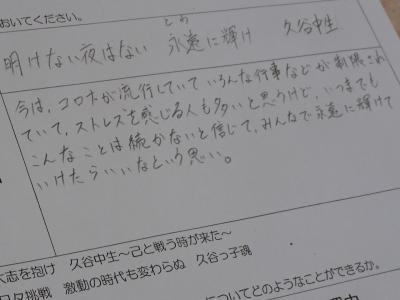 おいてください。
とわ
明けない夜はない 永遠に輝け 久谷中生
今は、コロナが流行していていろんな行事などが制限され
ていて、ストレスを感じる人も多いと思うけど、いつまでも
こんなことは続かないと信じて、みんなで永遠に輝けて
いけたらいいなという思い。
大志を抱け 久谷中生～己と戦う時が来た～
挑戦 激動の時代も変わらぬ 久谷っ子魂
についてとのようなことができるか。